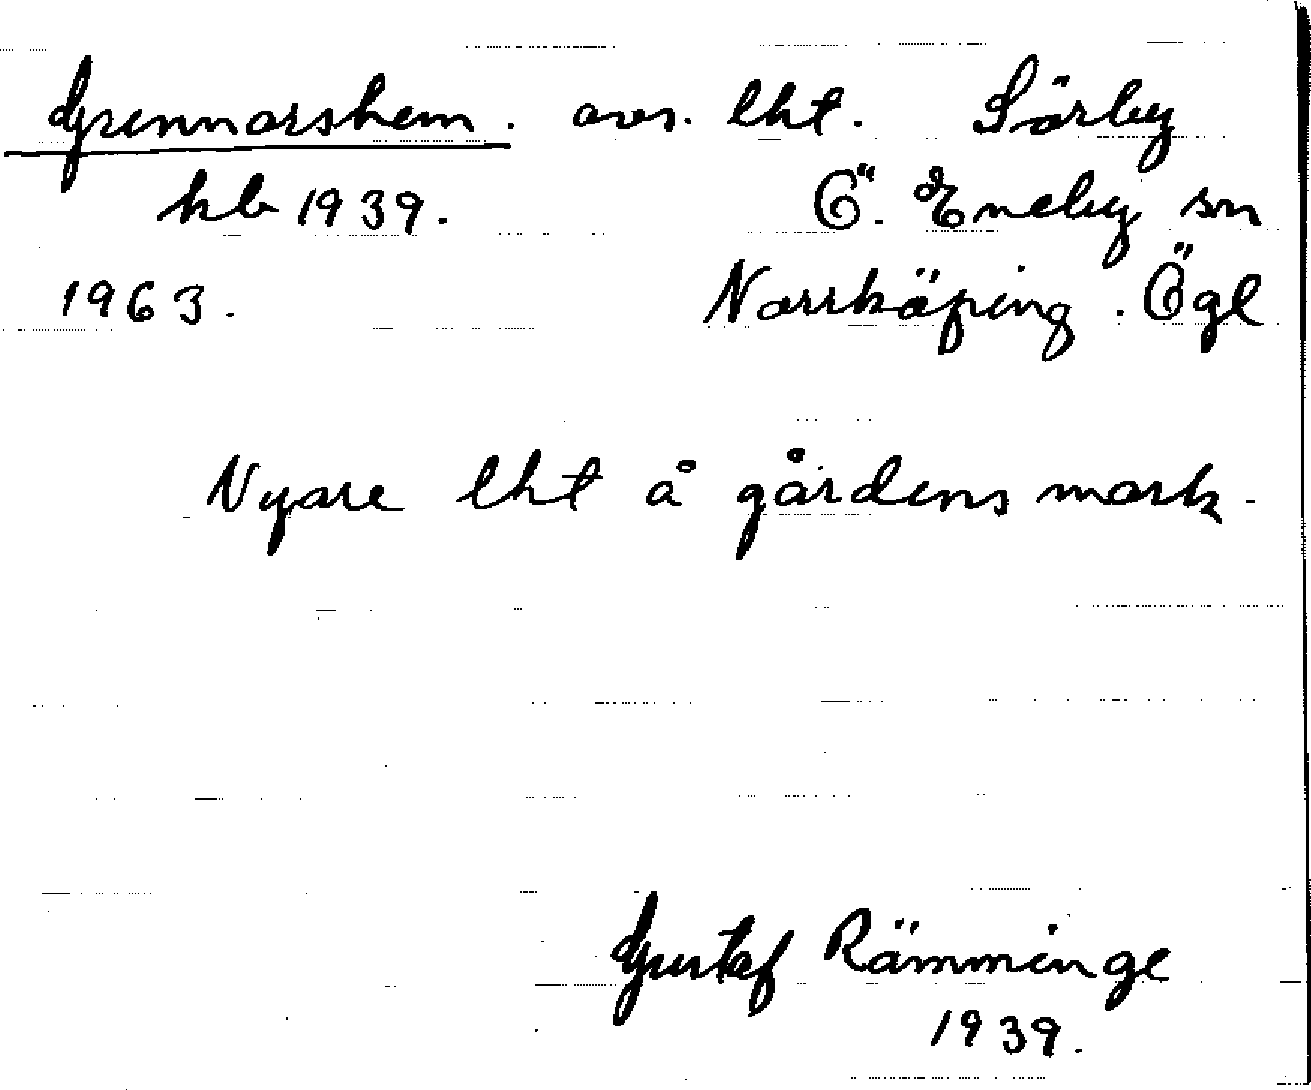 Gunnarshem. avs. lht. Sörby
kb 1939. Ö. Eneby sn
1963. Norrköping. Ögl
Nyare lht å gårdens mark.
Gustaf Rämminge
1939.